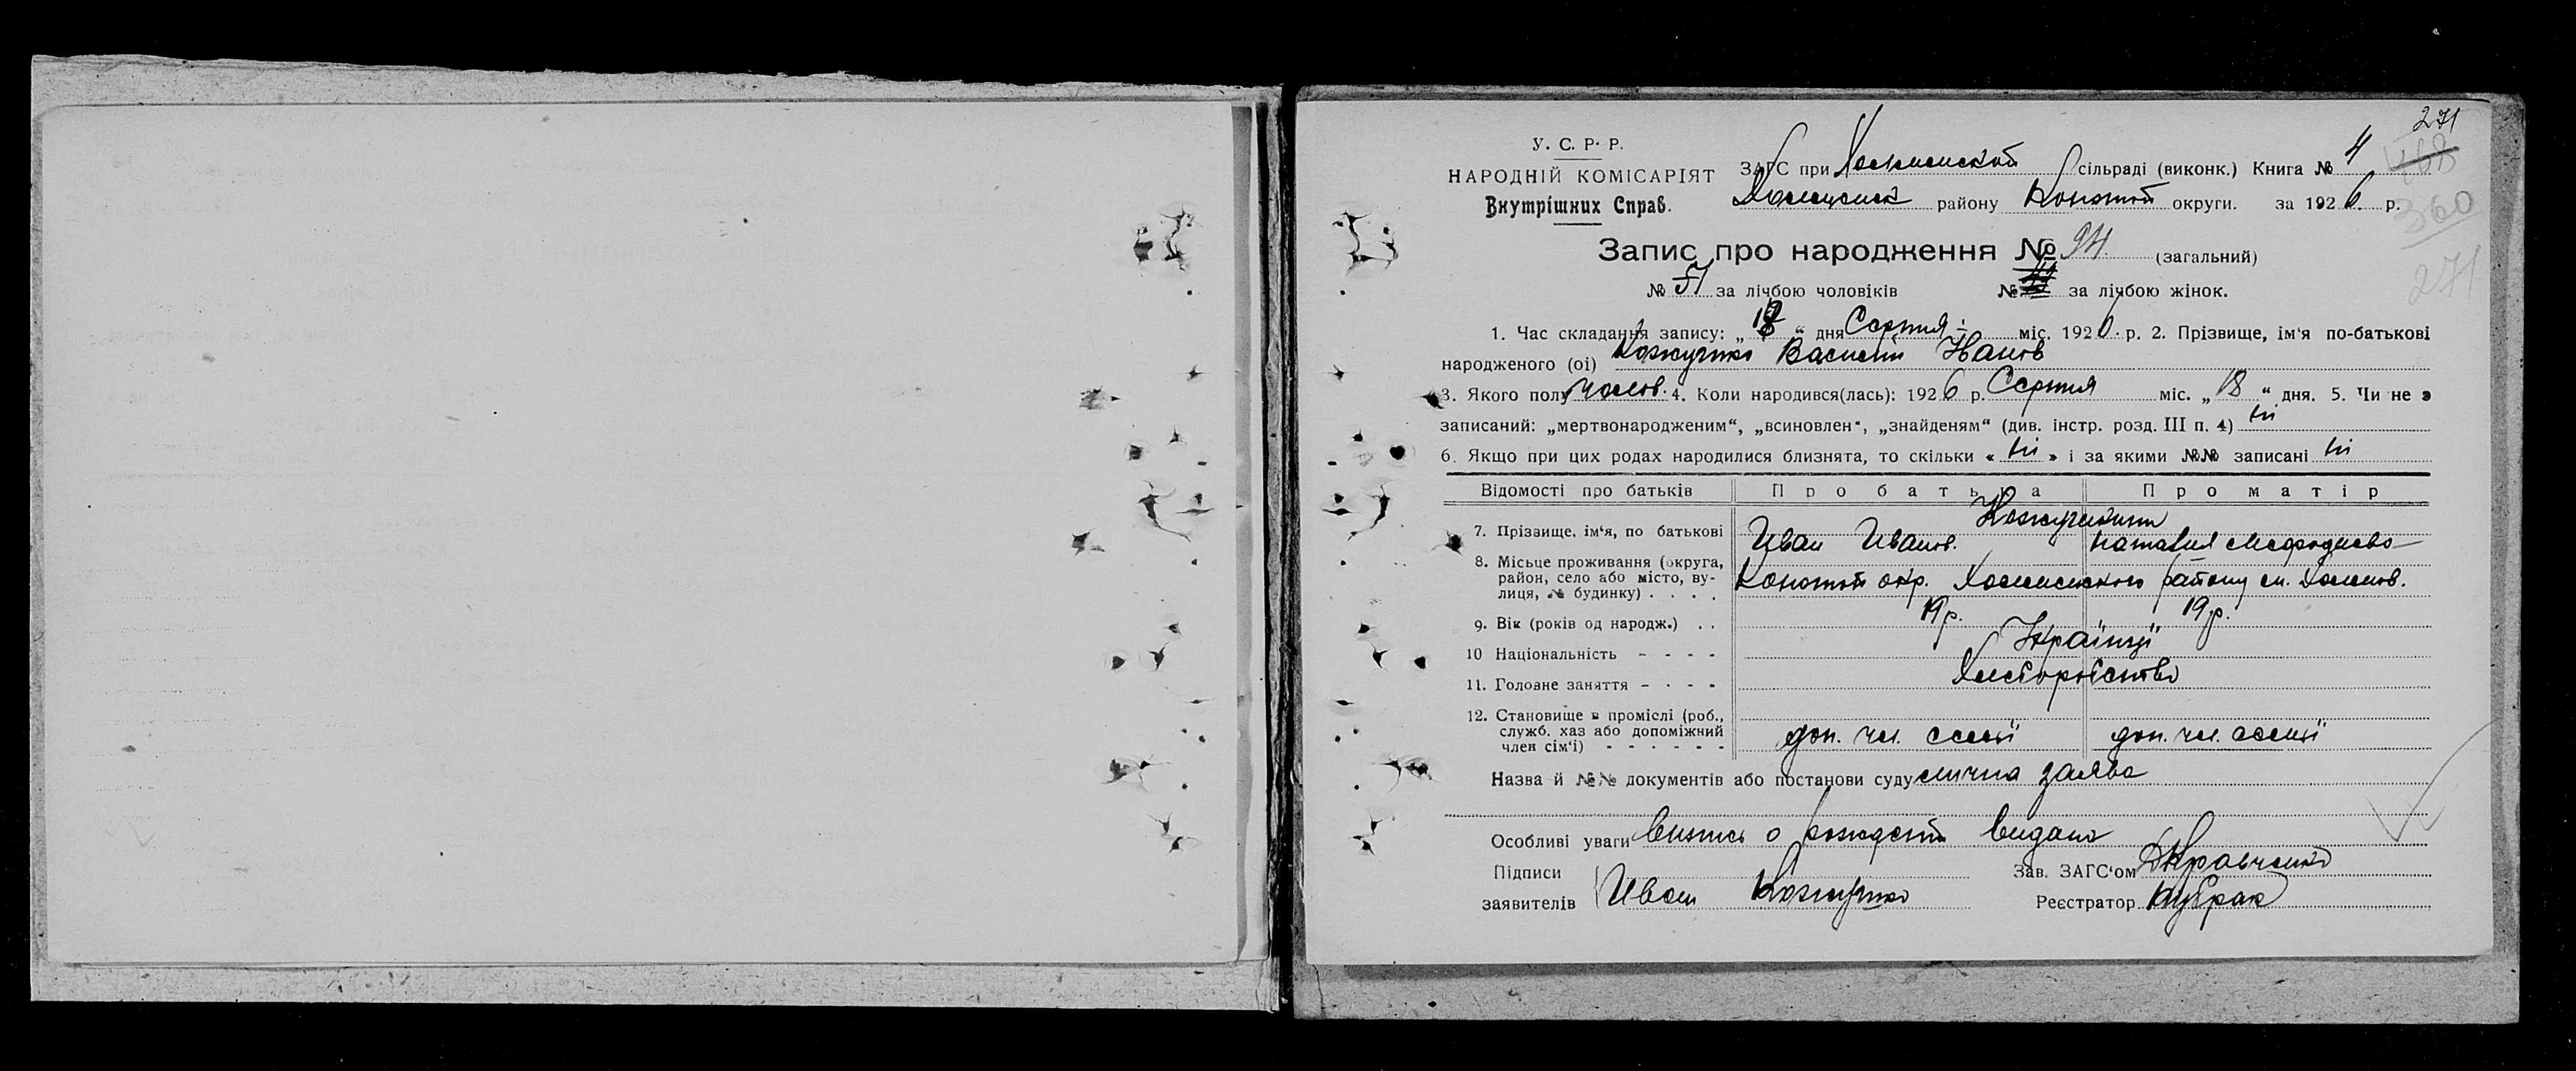 271
168
360
271
У. С. Р. Р.
НАРОДНІЙ КОМІСАРІЯТ
Внутрішних Справ.
ЗАГС при сільраді (виконк.) Книга № 4
району Конотоп округи. за 1926 р.
Запис про народження № 94. (загальний)
№ 51 за лічбою чоловіків № за лічбою жінок.
1. Час складання запису: „18“ дня Серпня міс. 1926 р. 2. Прізвище, ім'я по-батькові
народженого (ої) Кожушко Василій Іванов
3. Якого полу чолов. 4. Коли народився(лась): 1926 р. Серпня міс. „18“ дня. 5. Чи не є
записаний: „мертвонародженим“, „всиновлен“, „знайденям“ (див. інстр. розд. III п. 4) ні
6. Якщо при цих родах народилися близнята, то скільки « ні » і за якими №№ записані ні
Відомості про батьків Про батька Про матір
7. Прізвище, ім'я, по батькові
Иван Иванов. Наталия Мефодиево
8. Місьце проживання (округа, район, село або місто, вулиця, № будинку) . . . .
Конотоп окр. району
9. Вік (років од народж.) . . 19 р. 19 р.
10 Національність - - - - Українці
11. Головне заняття - - - - Хліборобство
12. Становище в проміслі (роб., служб. хаз або допоміжний член сім'ї) - - - - - -
доп. чл. семьї доп. чл. семьї
Назва й №№ документів або постанови суду слична заява
Особливі уваги Випись о рождені видана
Підписи
заявителів Иван Кожушко
Зав. ЗАГС'ом Кравченко
Реєстратор Кубрак